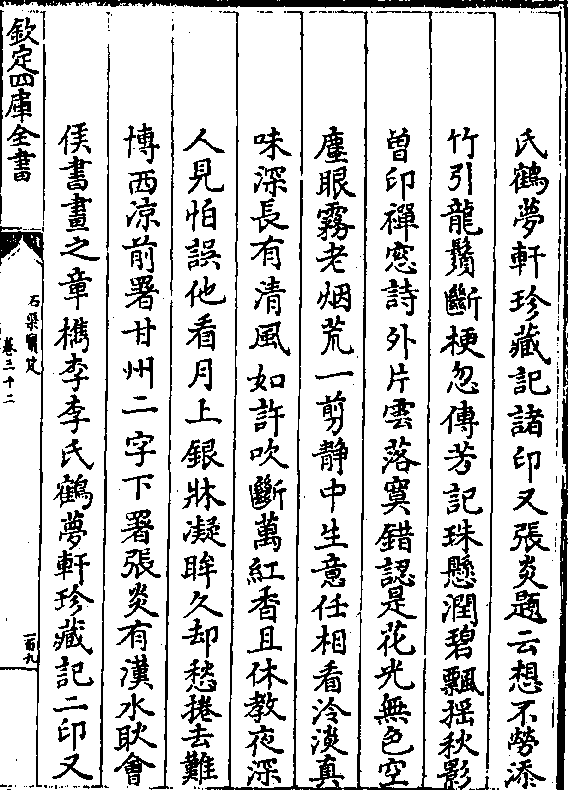 氏鶴夢軒珍藏記諸印又張炎題云想不勞添
竹引龍鬚斷梗忽傳芳記珠懸潤碧飄揺秋影
曾印禪窓詩外片雲落寞錯認是花光無色空
塵眼霧老烟荒一剪靜中生意任相看冷淡真
味深長有清風如許吹斷萬紅香且休教夜深
人見怕誤他看月上銀牀凝眸久却愁捲去難
博西凉前署甘州二字下署張炎有漢水耿會
侯書畫之章檇李李氏鶴夢軒珍藏記二印又
欽定四庫全書
石渠寶笈
卷三十二
一百九